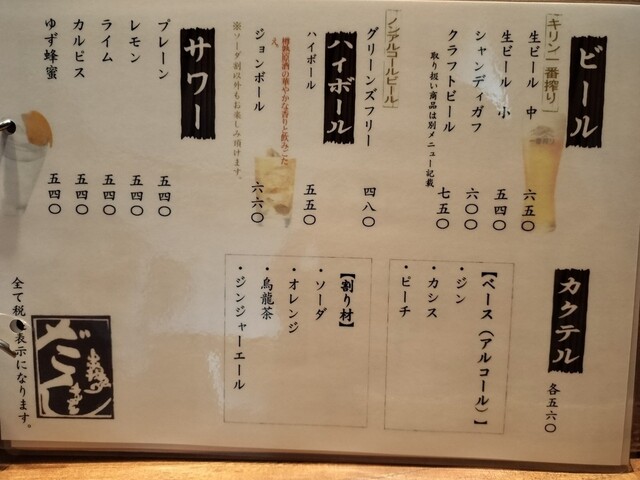 ビール
キリン一番搾り
生ビール 中 六五〇
生ビール 小 五四〇
シャンディガフ 六〇〇
クラフトビール 七五〇
取り扱い商品は別メニュー記載
ノンアルコールビール
グリーンズフリー 四八〇
ハイボール
ハイボール 五五〇
樽熟原酒の華やかな香りと飲みごたえ。
ジョンボール 六六〇
※ソーダ割以外もお楽しみ頂けます。
サワー
プレーン 五四〇
レモン 五四〇
ライム 五四〇
カルピス 五四〇
ゆず蜂蜜 五四〇
カクテル
各五六〇
【ベース(アルコール)】
・ジン
・カシス
・ピーチ
【割り材】
・ソーダ
・オレンジ
・烏龍茶
・ジンジャーエール
全て税 表示になります。